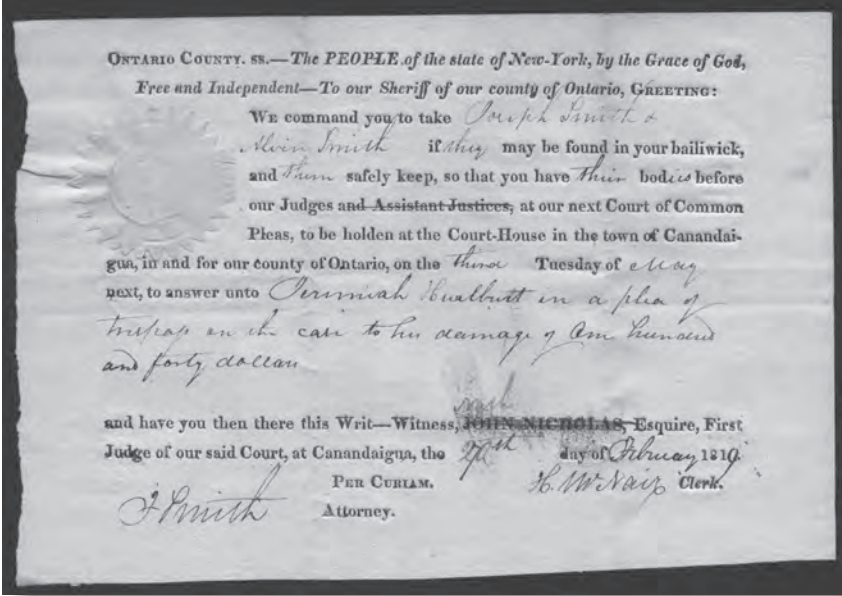 ONTARIO COUNTY. SS.—The PEOPLE of the state of New-York, by the Grace of God,
Free and Independent—To our Sheriff of our county of Ontario, GREETING:
WE command you to take Joseph Smith &
Alvin Smith if they may be found in your bailiwick,
and them safely keep, so that you have their bodies before
our Judges and Assistant Justices, at our next Court of Common
Pleas, to be holden at the Court-House in the town of Canandai-
gua, in and for our county of Ontario, on the third Tuesday of May
next, to answer unto Jeremiah Hurlbutt in a plea of
trespass on the case to his damage of One hundred
and forty dollars
and have you then there this Writ—Witness, JOHN NICHOLAS, Esquire, First
Judge of our said Court, at Canandaigua, the day of February 1819.
PER CURIAM. H. McNair Clerk.
J Smith Attorney.